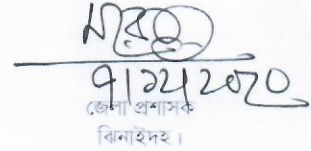 ৭/১২/২০২০
জেলা প্রশাসক
ঝিনাইদহ।